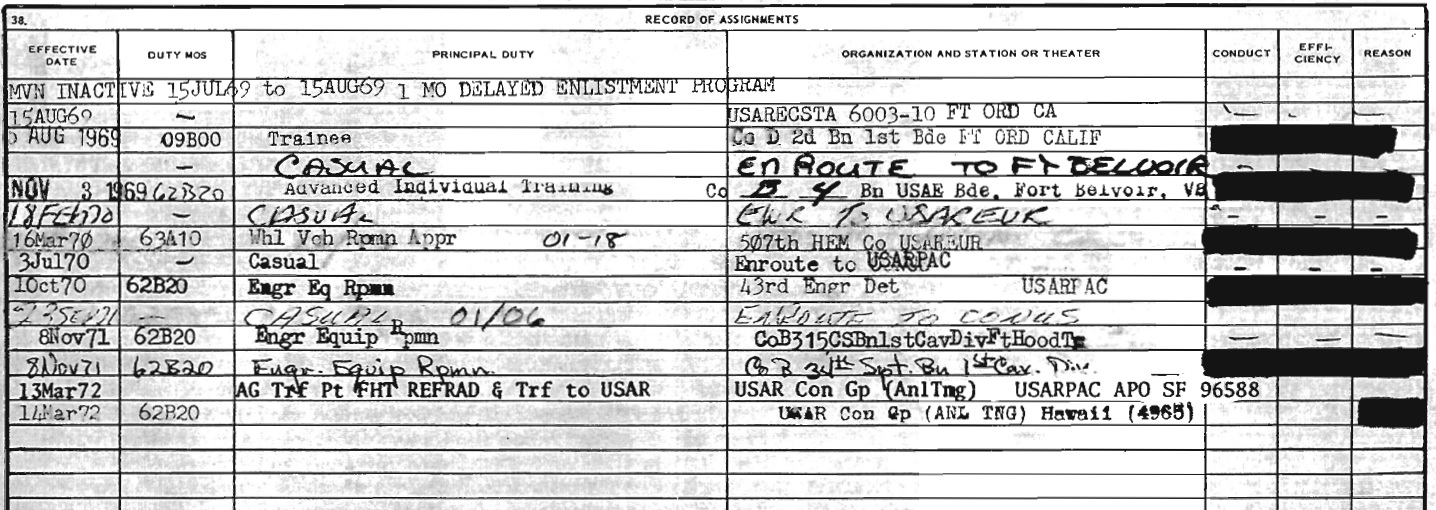 38. RECORD OF ASSIGNMENTS
EFFECTIVE DATE DUTY MOS PRINCIPAL DUTY ORGANIZATION AND STATION OR THEATER CONDUCT EFFI-CIENCY REASON
MVN INACTIVE 15JUL69 to 15AUG69 1 MO DELAYED ENLISTMENT PROGRAM
15AUG69 — USARECSTA 6003-10 FT ORD CA — - —
AUG 1969 09B00 Trainee Co D 2d Bn 1st Bde FT ORD CALIF
— CASUAL EN ROUTE TO FT BELVOIR - — —
NOV 3 1969 62B20 Advanced Individual Training Co B 4 Bn USAE Bde, Fort Belvoir, VA
18FEB70 — CASUAL ENR TO USAREUR — — —
16Mar70 63A10 Whl Veh Rpmn Appr 01-18 507th HEM Co USAREUR
3Jul70 — Casual Enroute to USARPAC — — —
1Oct70 62B20 Engr Eq Rpmn 43rd Engr Det USARPAC
— CASUAL 01/06 ENROUTE TO CONUS
8Nov71 62B20 Engr Equip Rpmn CoB315CSBn1stCavDivFtHoodTx — — —
8Nov71 62B20 Engr. Equip Rpmn. Co B 34th Spt. Bn 1st Cav. Div. —
13Mar72 AG Trf Pt FHT REFRAD & Trf to USAR USAR Con Gp (AnlTng) USARPAC APO SF 96588
14Mar72 62B20 USAR Con Gp (ANL TNG) Hawaii (4965)